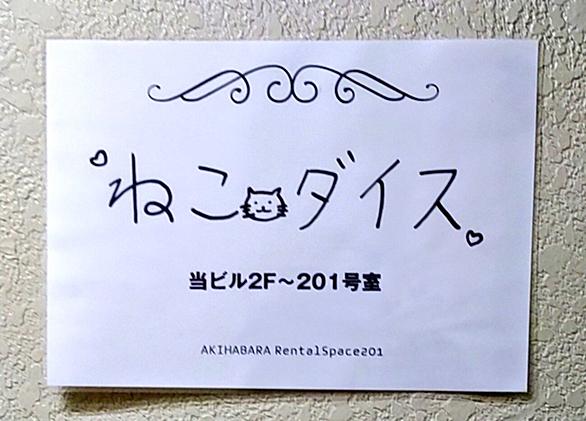 ねこダイス
当ビル2F～201号室
AKIHABARA RentalSpace201